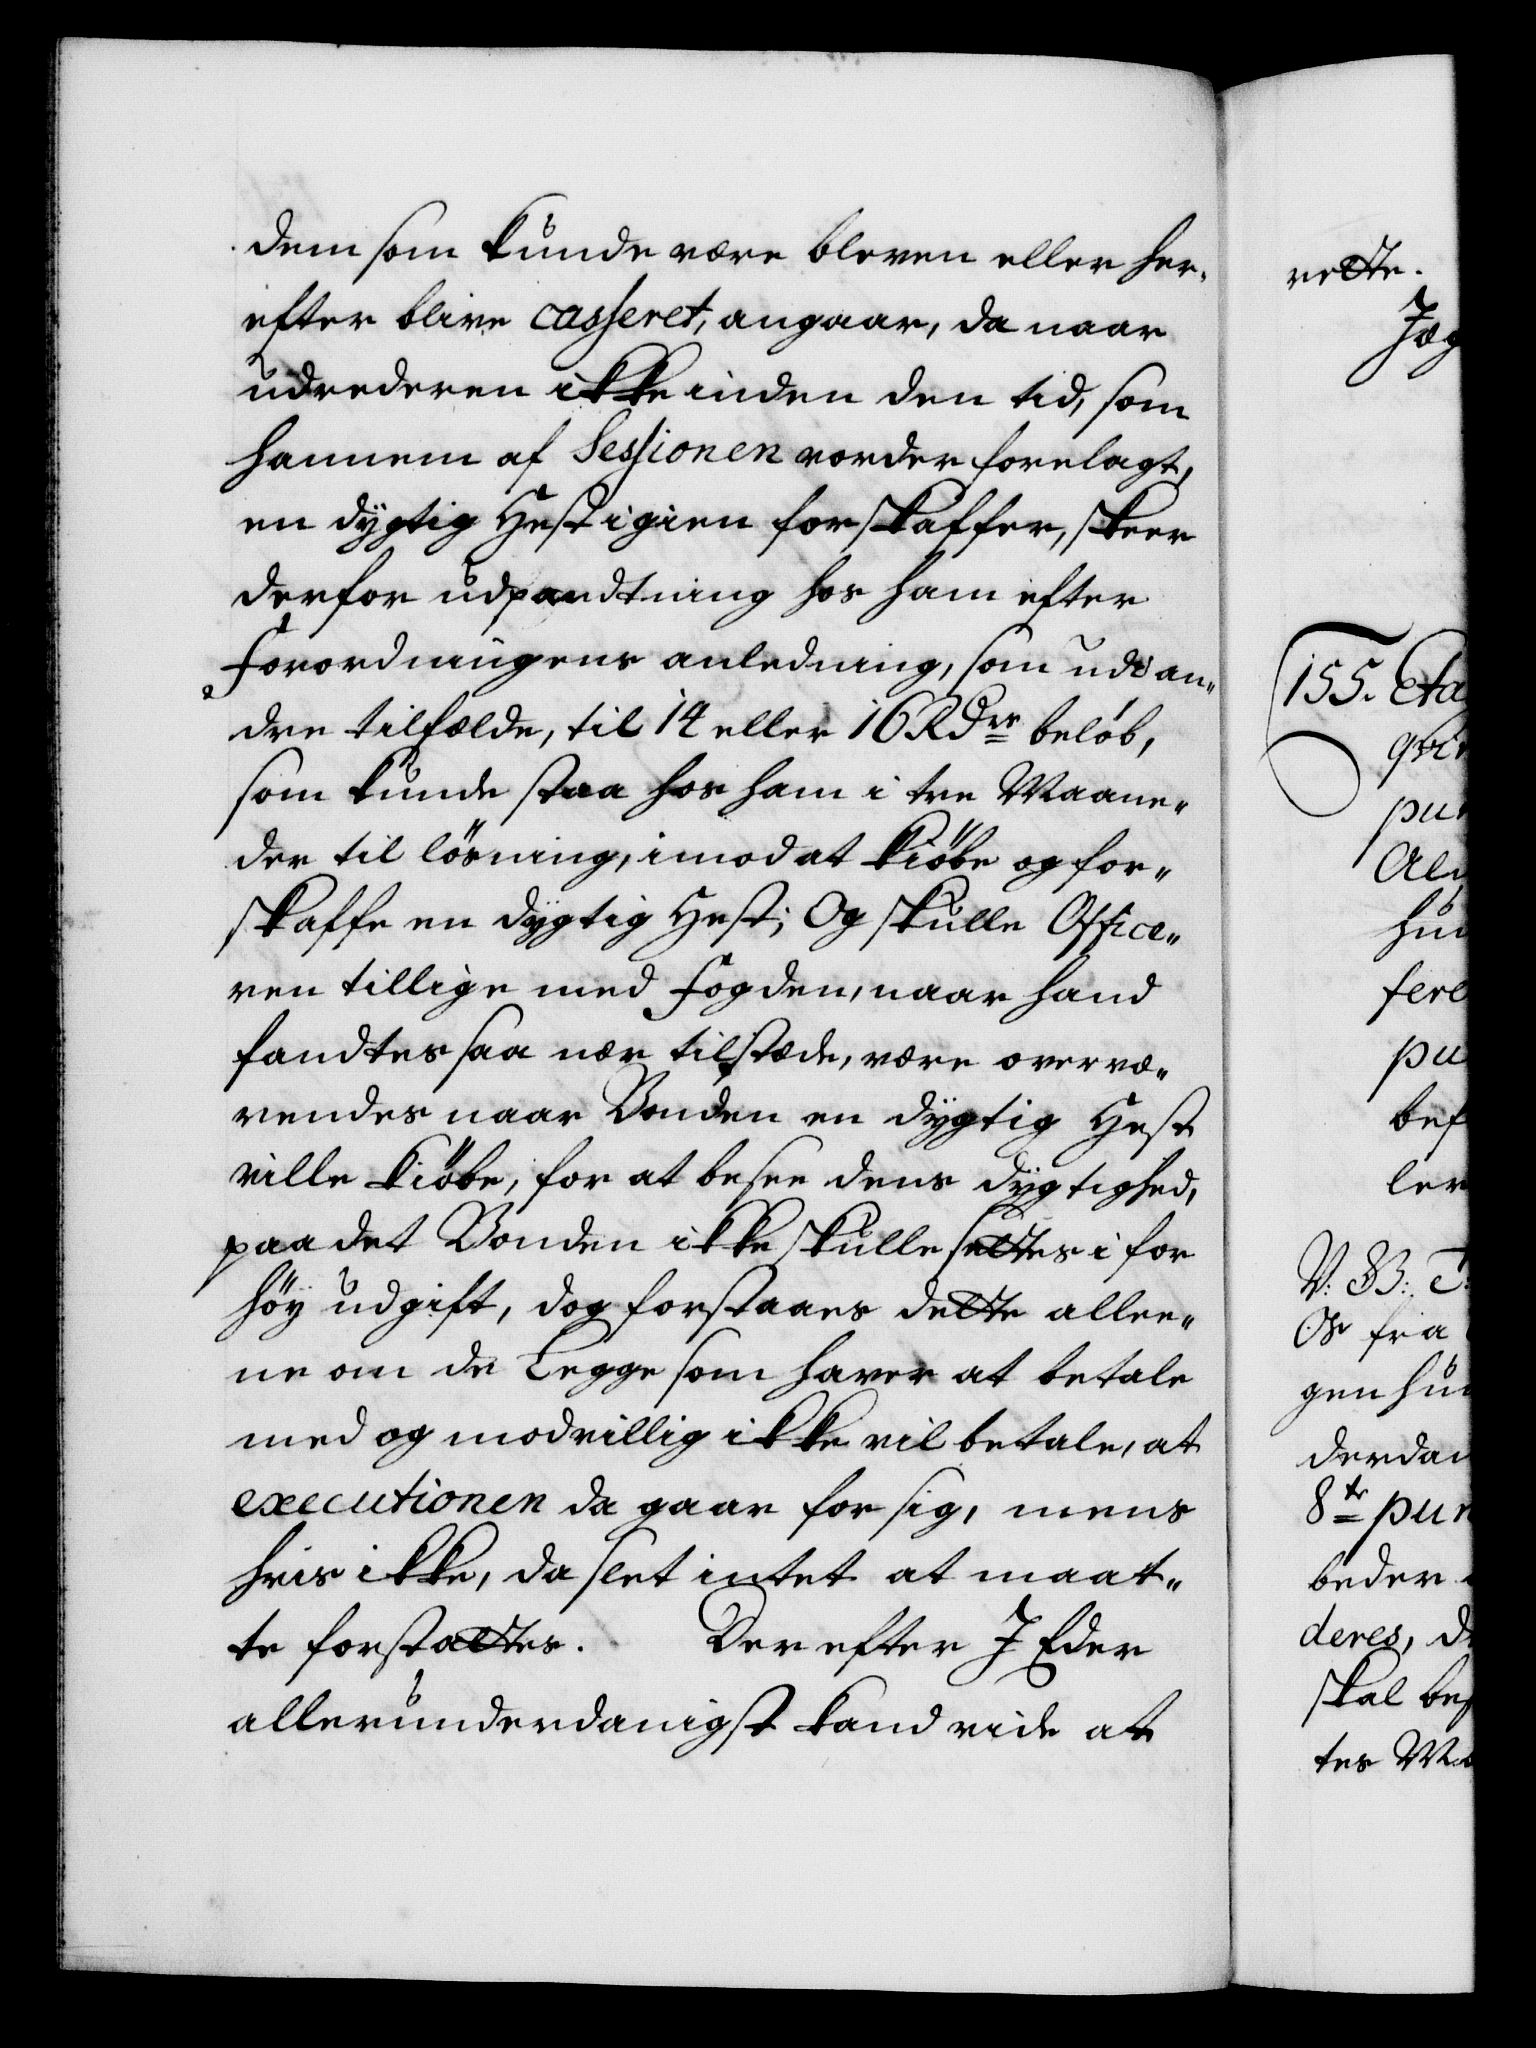 dem som kunde være bleven eller her-
efter blive casseret, angaar, da naar
udrederen ikke inden den tid, som
hannem af Sessionen vorder forelagt,
en dygtig Hest igien forskaffer, skeer
derfor udpandtning hos ham efter
Forordningens anledning, som udi an-
dre tilfælde, til 14 eller 16 Rdr beløb,
som kunde staa hos ham i tre Maane-
der til lösning, imod at kiöbe og for-
skaffe en dygtig Hest; Og skulle Office-
ren tillige med Fogden, naar hand
fandtes saa nær tilstæde, være overvæ-
rendes naar Bonden en dygtig Hest
ville kiöbe, for at besee dens dygtighed,
paa det Bonden ikke skulle settes i for
höy udgift, dog forstaaes dette allee-
ne om de Legge som haver at betale
med og modvillig ikke vil betale, at
executionen da gaar for sig, mens
hvis ikke, da slet intet at maat-
te forstattes. Der efter I Eder
allerunderdanigst kand vide at
rette.
Jæg
155. Eta
qvi
pun
Ald
hun
fere
pu
bef
ler
V: SB: T
Os fra
gen hun
derdan
8te pun
beder
deres, d
skal bef
tes Ma